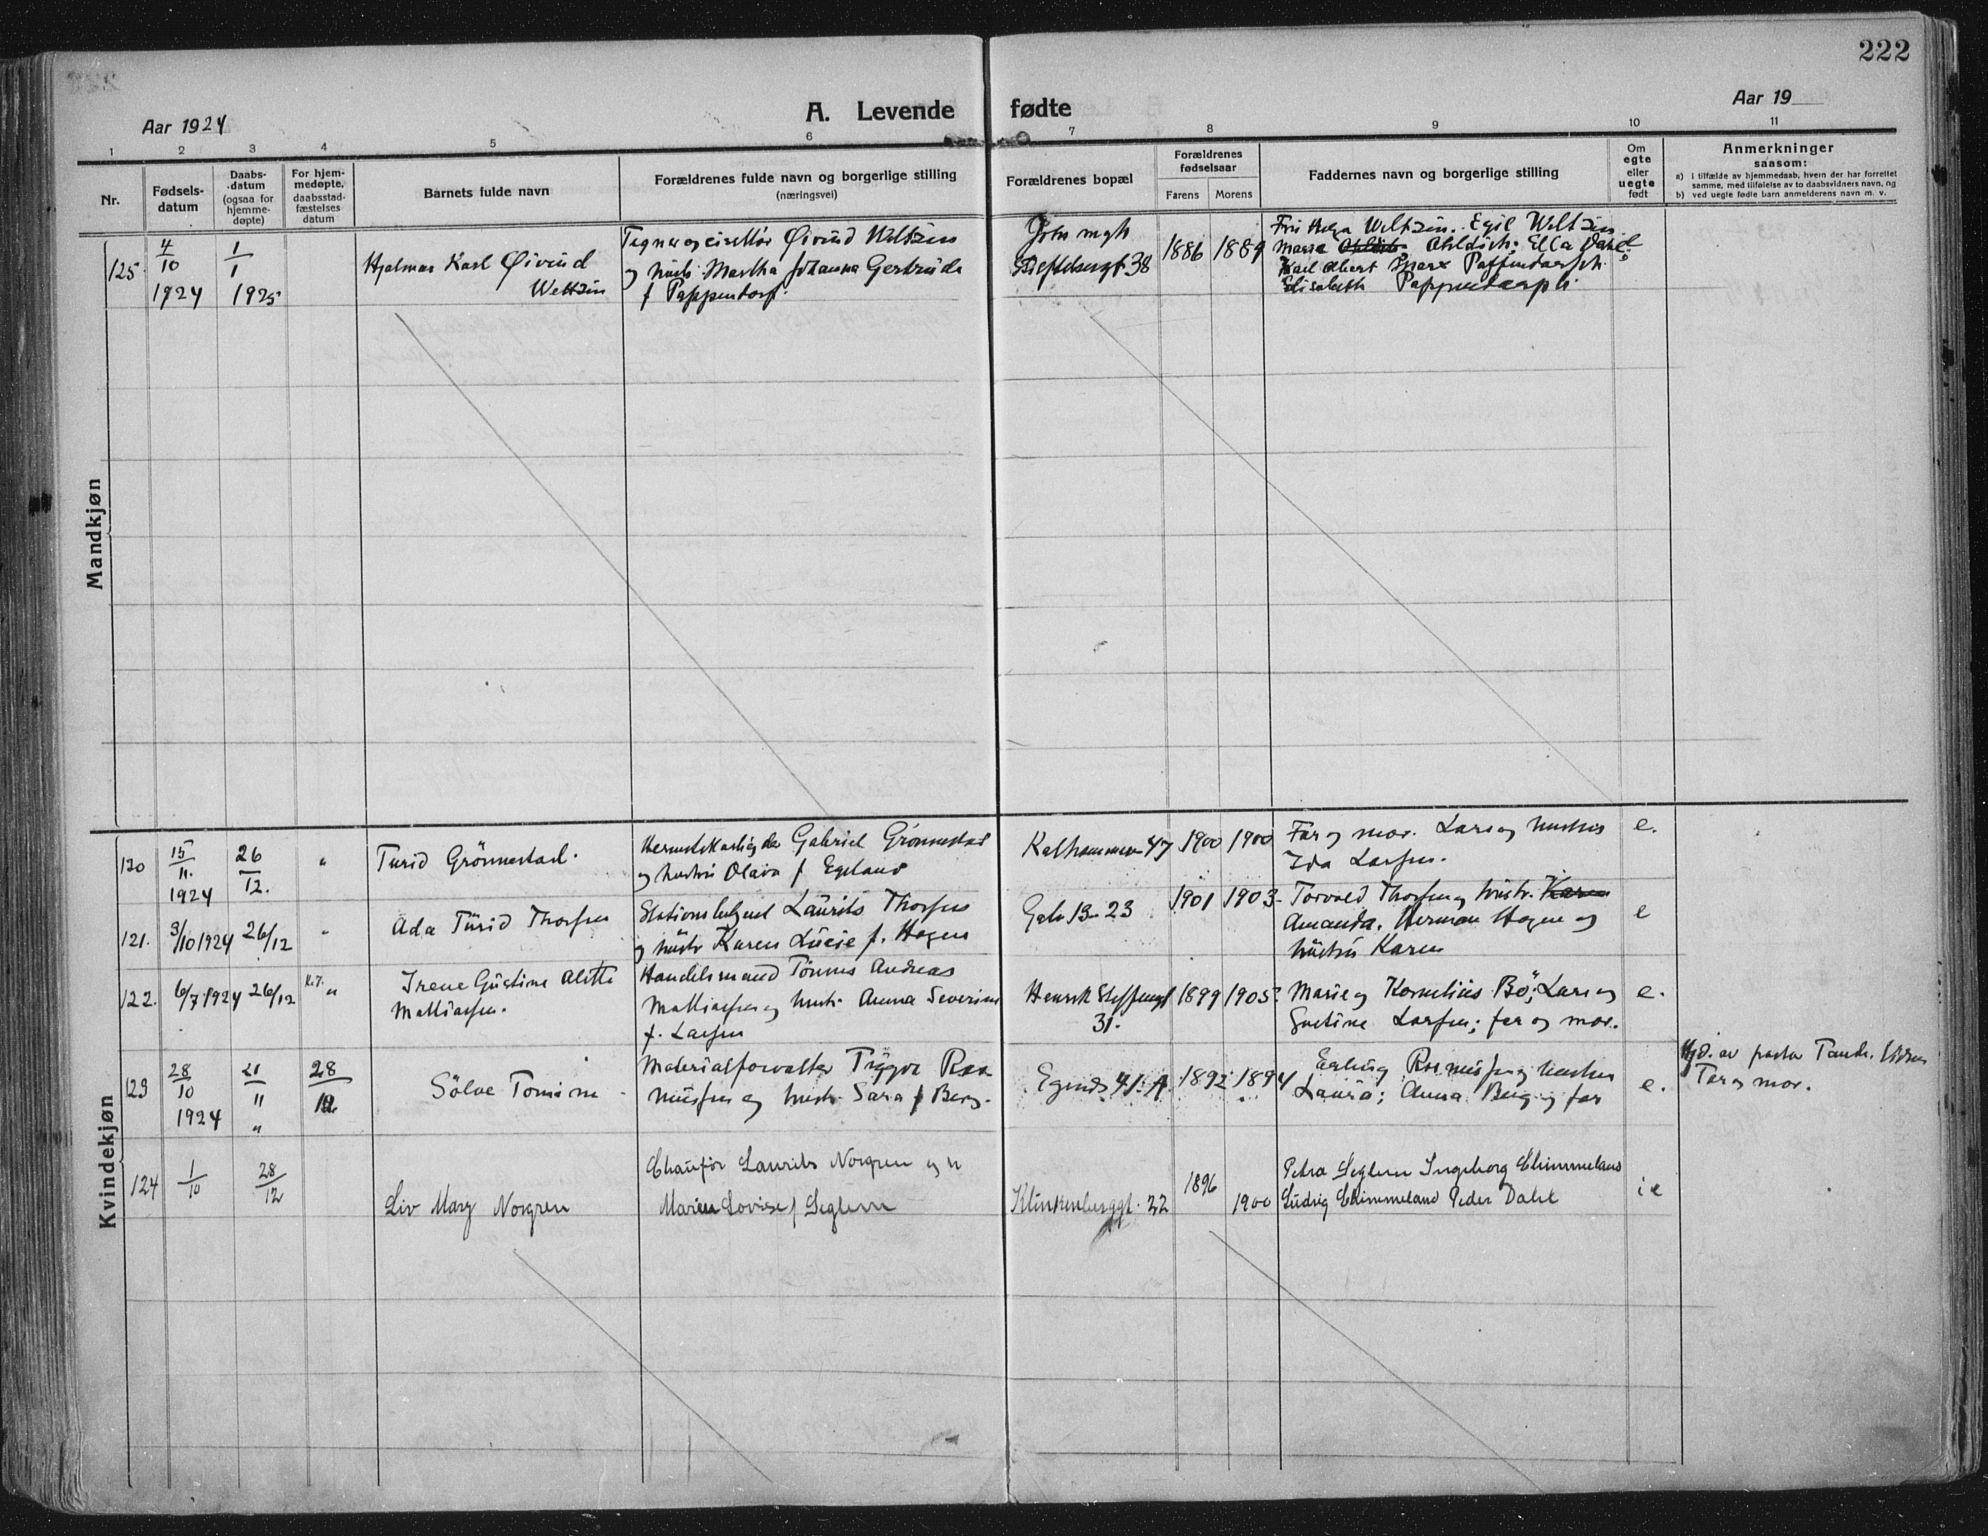 222
Aar 1924
A. Levende fødte
Aar 19
1 2 3 4 5 6 7 8 9 10 11
Nr.
Fødsels-
datum
Daabs-
datum
(ogsaa for
hjemme-
døpte)
For hjem-
medøpte,
daabsstad-
fæstelses
datum
Barnets fulde navn
Forældrenes fulde navn og borgerlige stilling
(næringsvei)
Forældrenes bopæl
Forældrenes
fødselsaar
Farens Morens
Faddernes navn og borgerlige stilling
Om
egte
eller
uegte
født
Anmerkninger
saasom:
a) i tilfælde av hjemmedaab, hvem der har forrettet
samme, med tilføielse av to daabsvidners navn, og
b) ved uegte fødte barn anmelderens navn m. v.
Mandkjøn
125.
4/10 1924
1/1 1925
Hjalmar Karl Øivind
Weltzin
Tegner og Øivind Weltzin
og Martha Johanna Gertrude
f Pappendorf.
38
1886 1889
Fru Helga Weltzin. Egil Weltzin
Ahldich. Ella Dahl
Karl Albert Marx Pappendorph.
Elisabeth Pappendorph.
Kvindekjøn
120
15/11. 1924
26/12.
"
Turid Grönnestad.
Gabriel Grönnestad
og hustru Olava f Egeland
Kalhammern 47
1900 1900
Far og mor. Lars og hustru
Ida Larsen.
e.
121.
3/10 1924
26/12
"
Ada Turid Thorsen
Stationsbetjent Laurits Thorsen
og hustr Karen Lucie f. Hagen
13-23
1901 1903.
Torvald Thorsen og hustr. Karen
Amanda. Herman Hagen og
hustru Karen
e
122.
6/7 1924
26/12
"
Irene Gustine Alette
Mattiassen.
Handelsmand Tönnes Andreas
Mattiassen og hustr. Anna Severine
f. Larsen
Henrik Steffensgt
31.
1899 1905
Marie og Kornelius Bö; Lars og
Gustine Larsen; far og mor.
e.
123
28/10 1924
21/11 "
28/12
Sölve Tomine
Materialforvalter Trygve Ras
mussen og hustr. Sara f Berg.
Egends 41. A.
1892 1894
Erling Rasmussen og hustru
Laura; Anna Berg og far
e.
Hjd. av pastor
Far og mor.
124
1/10
28/12
Liv Mary Norgren
Chaufför Laurits Norgren og h
Marien Lovise f Seglem
Klinkenberggt. 22
1896
1900
Petra Seglem Ingeborg Ehimmeland
Ludvig Ehimmeland Peder Dahl